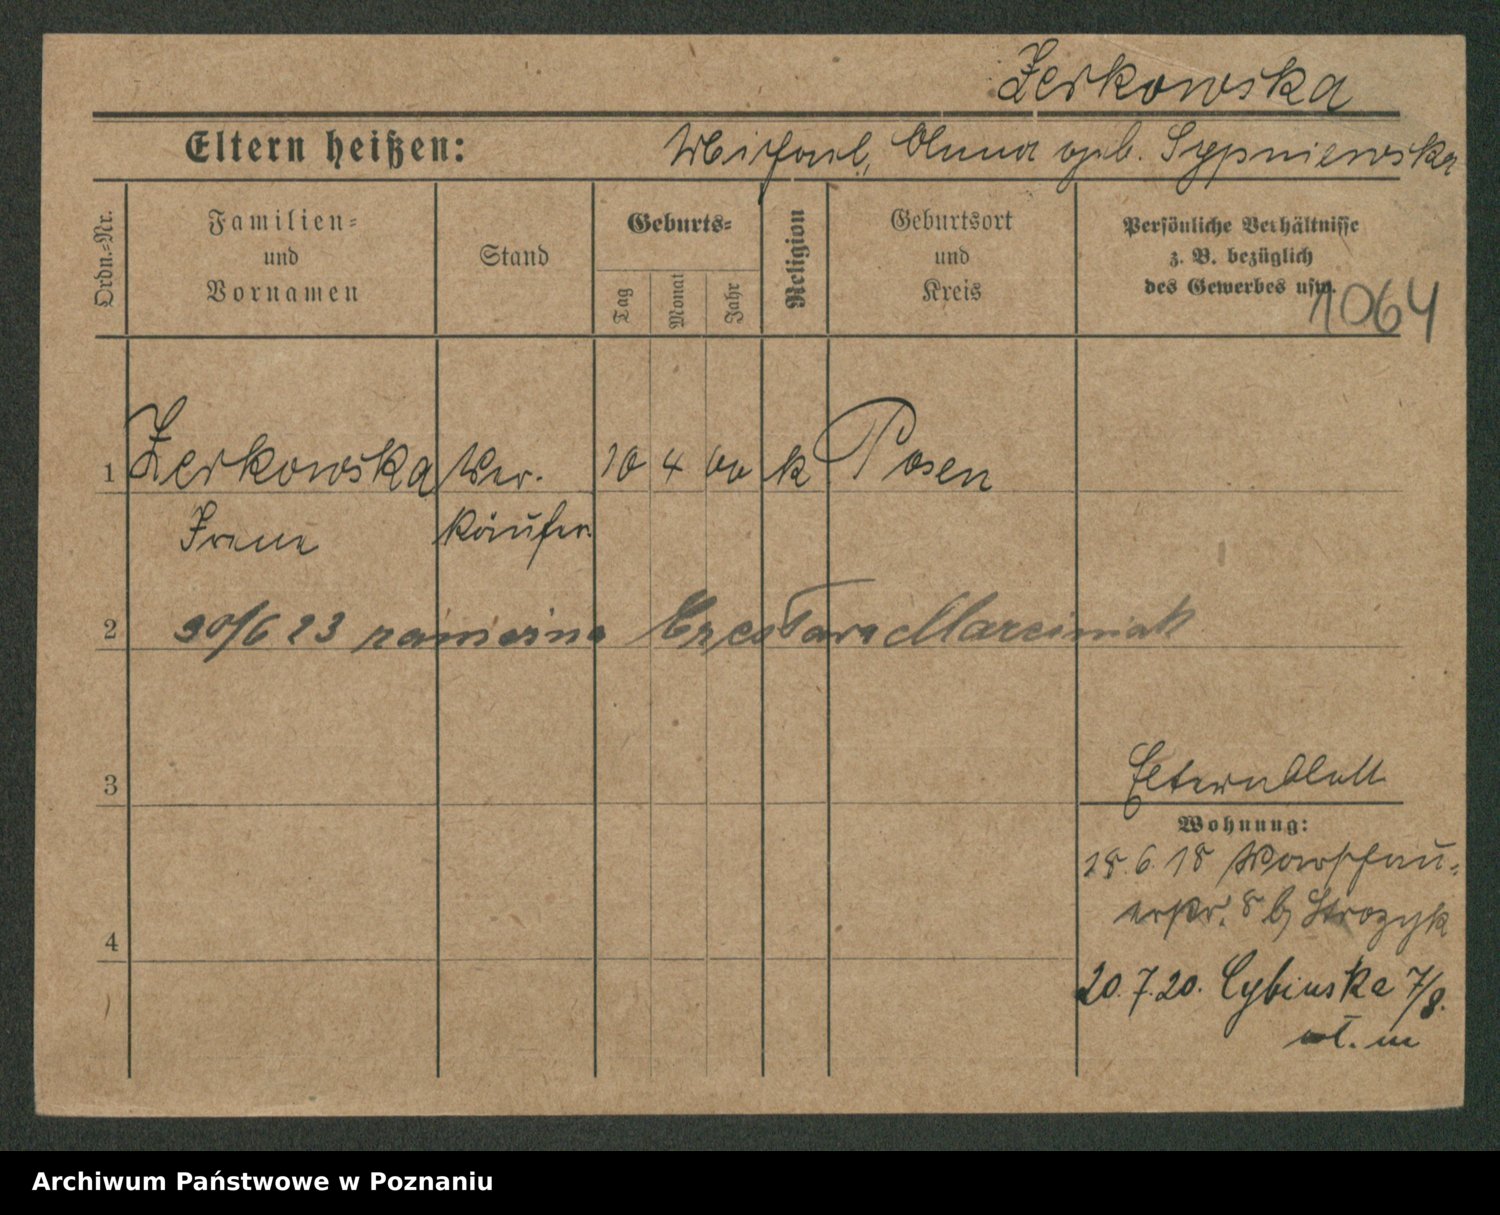 Zerkowska
Eltern heißen: Michael, Anna geb. Sypniewska
Ordn.=Nr.
Familien=
und
Vornamen
Stand
Geburts=
Tag
Monat
Jahr
Religion
Geburtsort
und
Kreis
Persönliche Verhältnisse
z. B. bezüglich
des Gewerbes usw.
1064
1 Zerkowska Ver- 10 4 00 k Posen
Irene käufer.
2 30/6 23 Czesława Marciniak
3
Elternblatt
Wohnung:
18.6.18 Warschau-
erstr. 8 b/ Strozyk
4
20.7.20. Cybinska 7/8.
wł. m